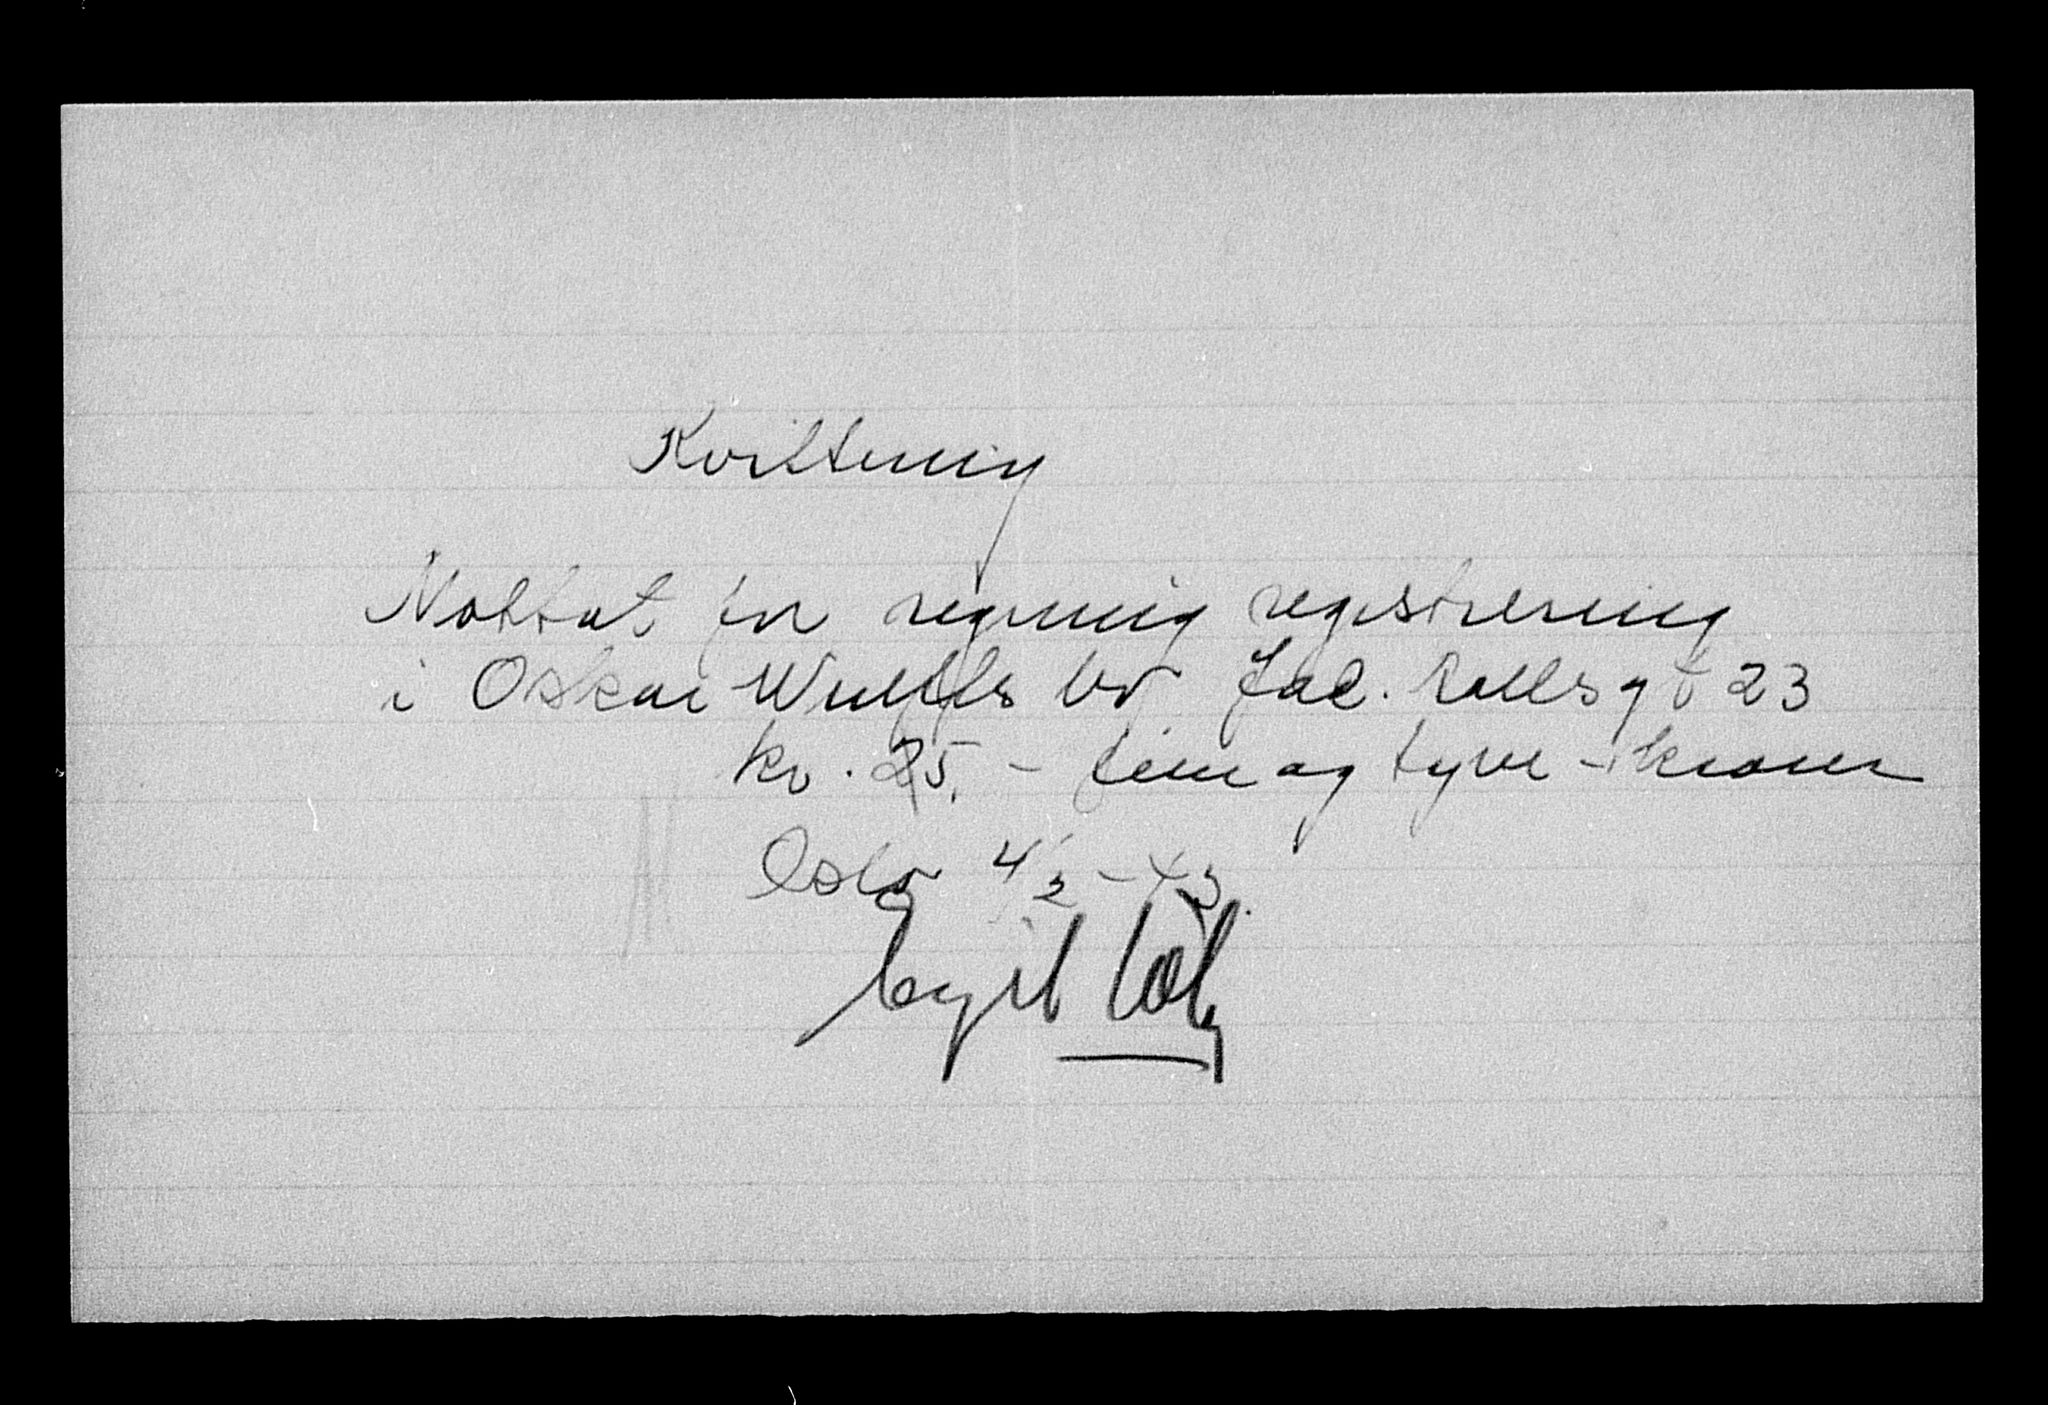 Kvittering
Mottat for regning registrering
i Oskar Wulffs bo Jac. Aallsgt 23
kr. 25. - fem og tyve - kroner
Oslo 4/2 - 43.
Egil